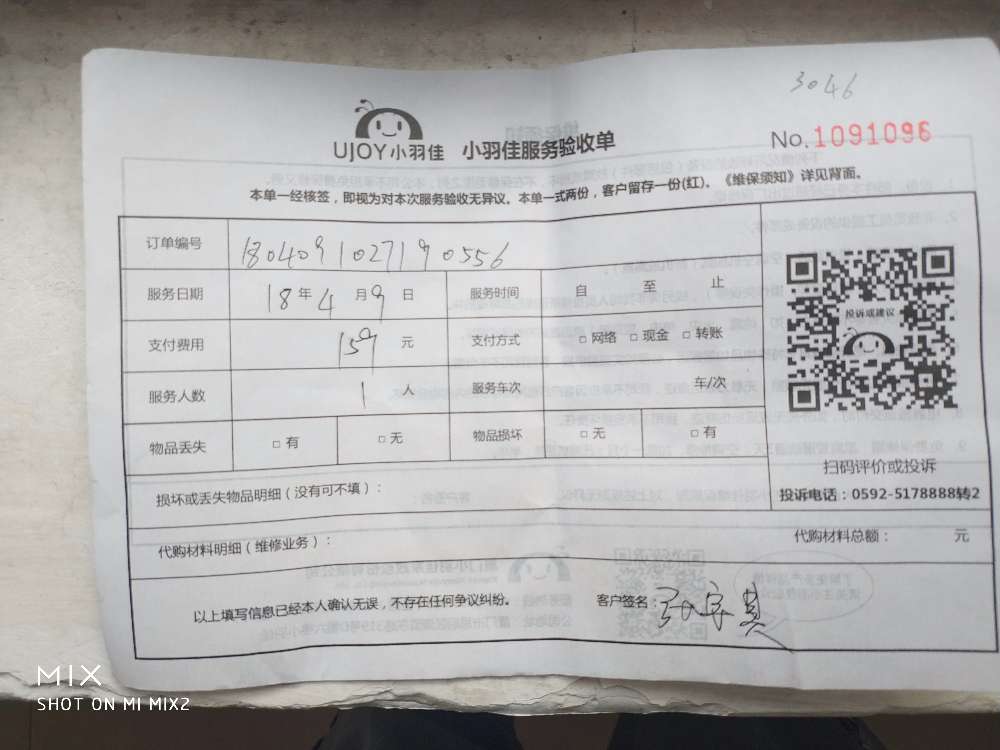 3046
UJOY小羽佳 小羽佳服务验收单
No.1091096
本单一经核签，即视为对本次服务验收无异议。本单一式两份，客户留存一份(红)。《维保须知》详见背面。
订单编号 180409102719 0556
服务日期 18年4月9日 服务时间 自 至 止
支付费用 159元 支付方式 □网络 □现金 □转账
服务人数 1人 服务车次 车/次
物品丢失 □有 □无 物品损坏 □无 □有
投诉或建议
扫码评价或投诉
投诉电话：0592-5178888转2
损坏或丢失物品明细（没有可不填）：
代购材料明细（维修业务）： 代购材料总额： 元
以上填写信息已经本人确认无误，不存在任何争议纠纷。 客户签名：
MIX
SHOT ON MI MIX2